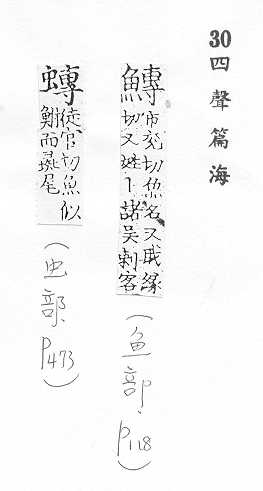 30四聲篇海
鱄
市兖切魚名又緣
切又姓丨諸吳刺客
（鱼部，P118）
蟤
徒官切魚似
鮒而彘尾
（虫部，P473）